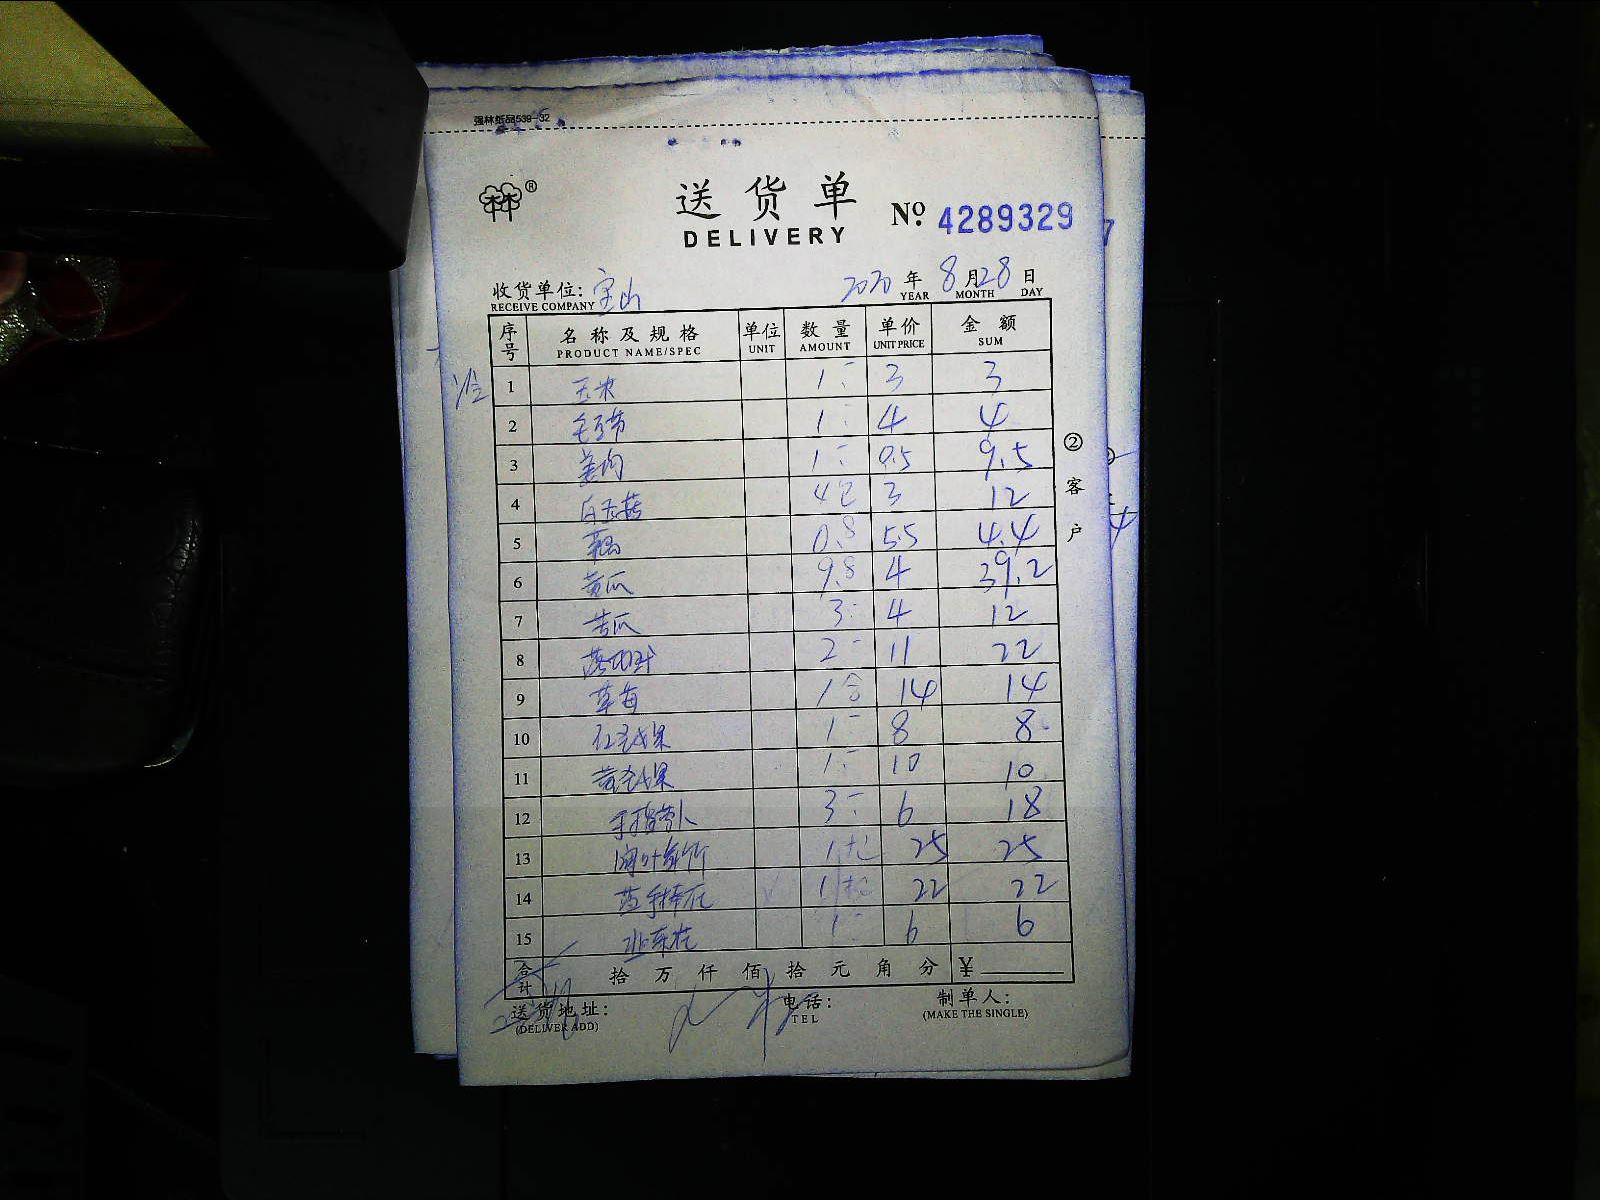 强林纸品539-32
林®
送货单
DELIVERY
No. 4289329
收货单位: 宝山
RECEIVE COMPANY
2020 年 8 月 28 日
YEAR MONTH DAY
序号 名称及规格 单位 数量 单价 金额
PRODUCT NAME/SPEC UNIT AMOUNT UNIT PRICE SUM
1 玉米 1 3 3
2 毛豆节 1 4 4
3 姜肉 1 9.5 9.5
4 白玉菇 4包 3 12
5 藕 0.8 5.5 4.4
6 黄瓜 9.8 4 39.2
7 苦瓜 3 4 12
8 2 11 22
9 草莓 1合 14 14
10 1 8 8
11 1 10 10
12 手指萝卜 3 6 18
13 1 25 25
14 1 22 22
15 1 6 6
合计 拾 万 仟 佰 拾 元 角 分 ¥
送货地址: 电话: 制单人:
(DELIVER ADD) TEL (MAKE THE SINGLE)
②客户